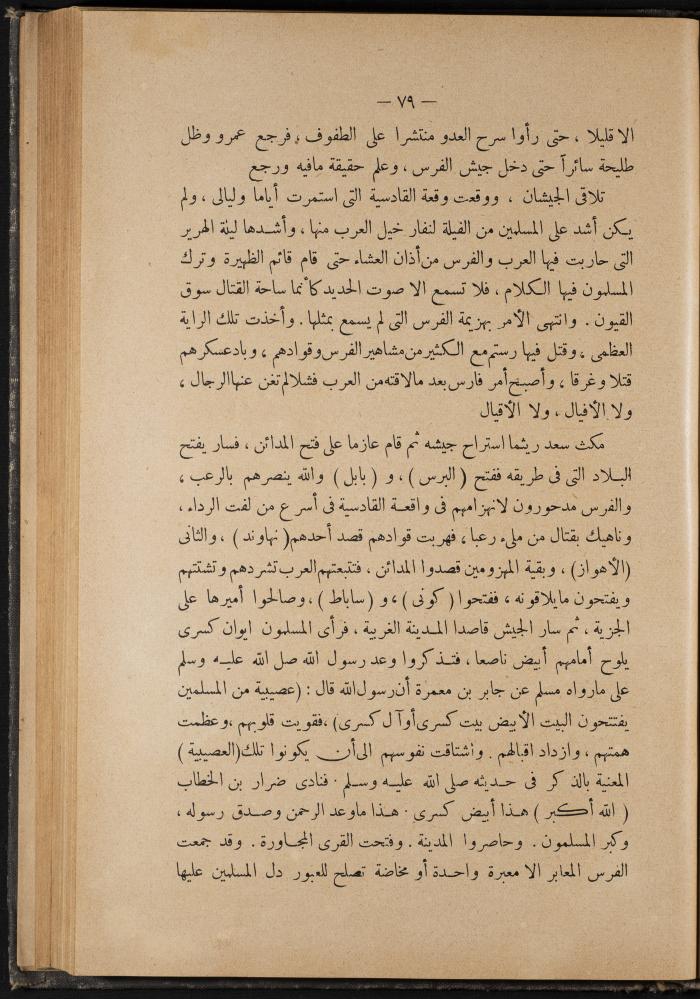 — ٧٩ —
الا قليلا ، حتى رأوا سرح العدو منتشرا على الطفوف ، فرجع عمرو وظل
طليحة سائرآ حتى دخل جيش الفرس ، وعلم حقيقة مافيه ورجع
تلاقى الجيشان ، ووقعت وقعة القادسية التى استمرت أياما وليالى ، ولم
يكن أشد على المسلمين من الفيلة لنفار خيل العرب منها ، وأشدها ليلة الهرير
التى حاربت فيها العرب والفرس من أذان العشاء حتى قام قائم الظهيرة وترك
المسلمون فيها الكلام ، فلا تسمع الا صوت الحديد كأنما ساحة القتال سوق
القيون . وانتهى الأمر بهزيمة الفرس التى لم يسمع بمثلها . وأخذت تلك الراية
العظمى ، وقتل فيها رستم مع الكثير من مشاهير الفرس وقوادهم ، وباد عسكرهم
قتلا وغرقا ، وأصبح أمر فارس بعد مالاقته من العرب فشلا لم تغن عنها الرجال ،
ولا الأفيال ، ولا الأقيال
مكث سعد ريثما استراح جيشه ثم قام عازما على فتح المدائن ، فسار يفتح
البلاد التى فى طريقه ففتح ( البرس ) ، و ( بابل ) والله ينصرهم بالرعب ،
والفرس مدحورون لانهزامهم فى واقعة القادسية فى أسرع من لفت الرداء ،
وناهيك بقتال من ملىء رعبا ، فهربت قوادهم قصد أحدهم ( نهاوند ) ، والثانى
(الأهواز) ، وبقية المهزومين قصدوا المدائن . فتتبعتهم العرب تشردهم وتشتتهم
ويفتحون مايلاقونه ، ففتحوا ( كوثى ) ، و ( ساباط ) ، وصالحوا أميرها على
الجزية ، ثم سار الجيش قاصدا المدينة الغربية ، فرأى المسلمون ايوان كسرى
يلوح أمامهم أبيض ناصعا ، فتذكروا وعد رسول الله صل الله عليه وسلم
على مارواه مسلم عن جابر بن معمرة أن رسول الله قال : (عصيبية من المسلمين
يفتتحون البيت الأبيض بيت كسرى أو آل كسرى) ، فقويت قلوبهم ، وعظمت
همتهم ، وازداد اقبالهم . واشتاقت نفوسهم الى أن يكونوا تلك (العصيبية )
المعنية بالذكر فى حديثه صلى الله عليه وسلم . فنادى ضرار بن الخطاب
( الله أكبر ) هذا أبيض كسرى . هذا ماوعد الرحمن وصدق رسوله ،
وكبر المسلمون . وحاصروا المدينة . وفتحت القرى المجاورة . وقد جمعت
الفرس المعابر الا معبرة واحدة أو مخاضة تصلح للعبور دل المسلمين عليها